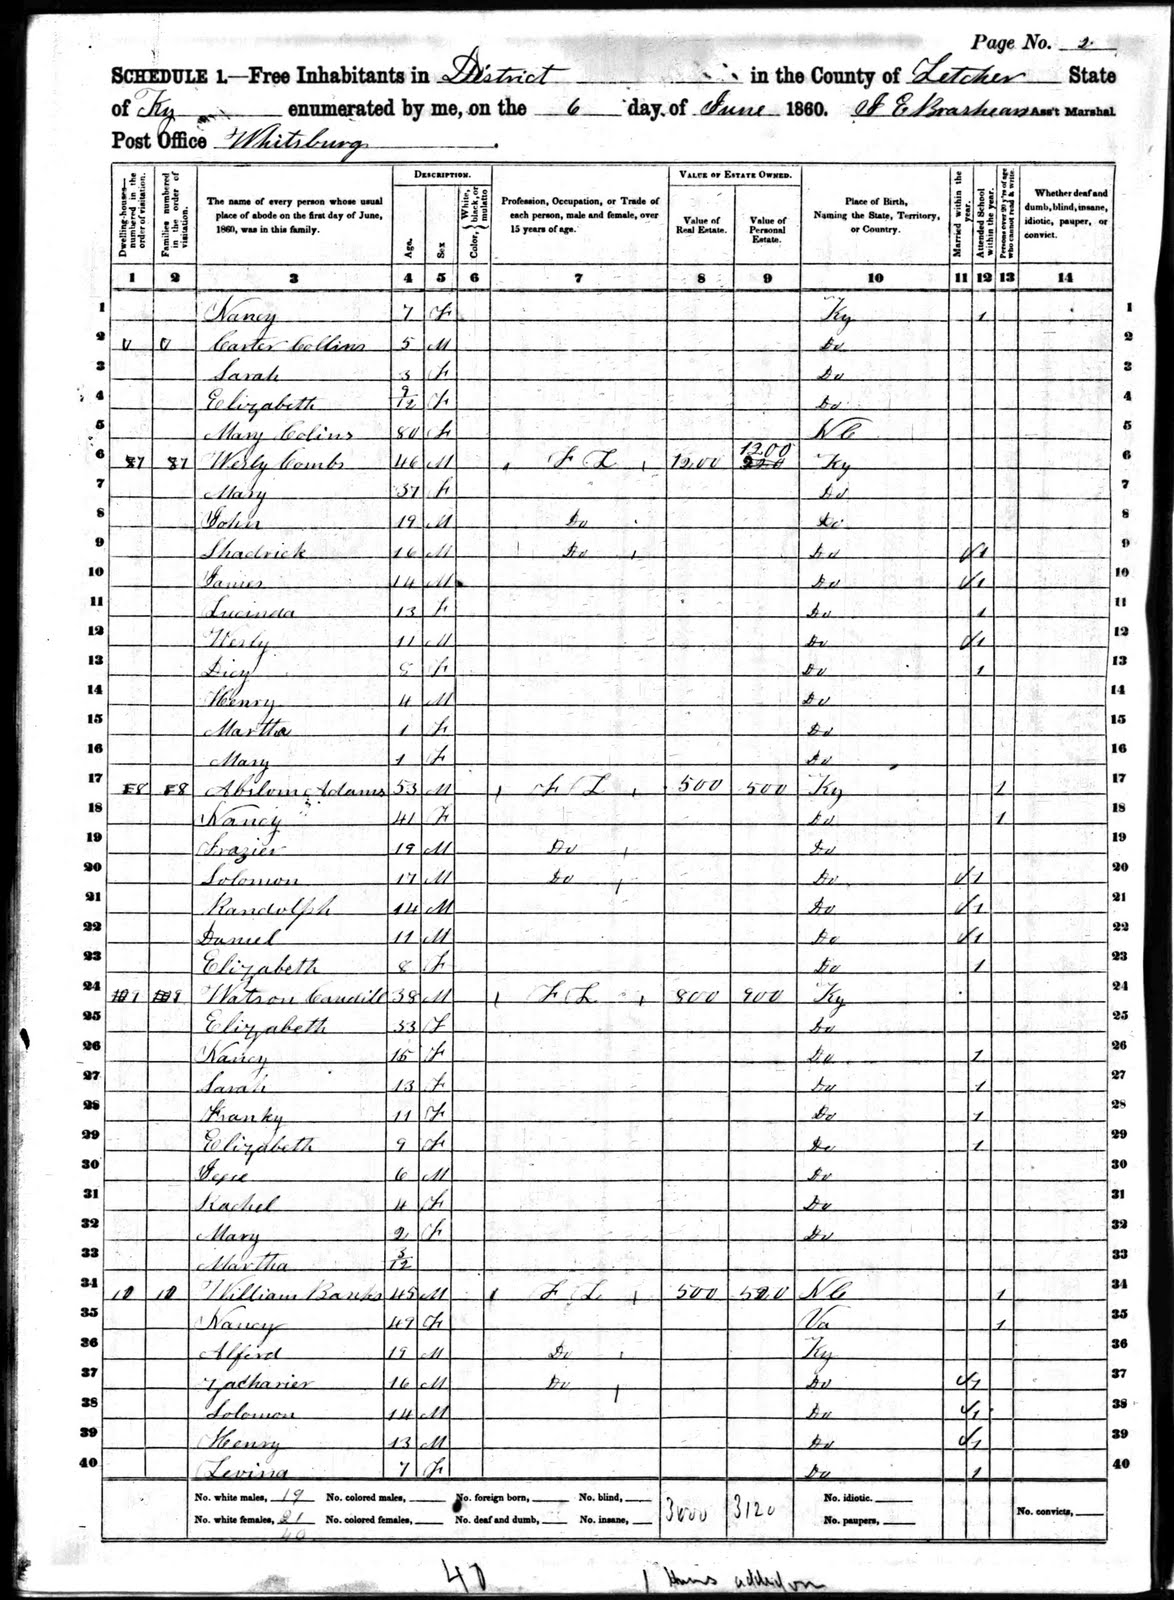 Page No. 2
SCHEDULE 1.—Free Inhabitants in District in the County of Letcher State
of Ky enumerated by me, on the 6 day of June 1860. J E Brashears Ass't Marshal
Post Office Whitsburg
Dwelling-houses—numbered in the order of visitation.
Families numbered in the order of visitation.
The name of every person whose usual place of abode on the first day of June, 1860, was in this family.
DESCRIPTION.
Age.
Sex
Color, { White, black, or mulatto
Profession, Occupation, or Trade of each person, male and female, over 15 years of age.
VALUE OF ESTATE OWNED.
Value of Real Estate.
Value of Personal Estate.
Place of Birth, Naming the State, Territory, or Country.
Married within the year.
Attended School within the year.
Persons over 20 y'rs of age who cannot read & write.
Whether deaf and dumb, blind, insane, idiotic, pauper, or convict.
1 2 3 4 5 6 7 8 9 10 11 12 13 14
1 Nancy 7 F Ky 1 1
2 0 0 Carter Collins 5 M Do 2
3 Sarah 3 F Do 3
4 Elizabeth 9/12 F Do 4
5 Mary Colins 80 F N C 5
6 87 87 Wesly Combs 46 M F L 1200 1200 Ky 6
7 Mary 37 F Do 7
8 John 19 M Do Do 8
9 Shadrick 16 M Do Do 1 9
10 James 14 M Do 1 10
11 Lucinda 13 F Do 1 11
12 Wesly 11 M Do 1 12
13 Dicy F Do 1 13
14 Henry 4 M Do 14
15 Martha 1 F Do 15
16 Mary 1 F Do 16
17 88 88 Absilom Adams 53 M F L 500 500 Ky 1 17
18 Nancy 41 F Do 1 18
19 Frazier 19 M Do Do 19
20 Solomon 17 M Do Do 1 20
21 Randolph 14 M Do 1 21
22 Daniel 11 M Do 1 22
23 Elizabeth 8 F Do 1 23
24 Watson Caudill 38 M F L 800 900 Ky 24
25 Elizabeth 33 F Do 25
26 Nancy 15 F Do 1 26
27 Sarah 13 F Do 1 27
28 Franky 11 F Do 1 28
29 Elizabeth 9 F Do 1 29
30 Jesse 6 M Do 30
31 Rachel 4 F Do 31
32 Mary 2 F Do 32
33 Martha 3/12 33
34 10 10 William Banks 45 M F L 500 520 N C 1 34
35 Nancy 49 F Va 1 35
36 Alferd 19 M Do Ky 36
37 Zacharier 16 M Do Do 1 37
38 Solomon 14 M Do 1 38
39 Henry 13 M Do 1 39
40 Levina 7 F Do 1 40
No. white males, 19 No. colored males, No. foreign born, No. blind, 3000 3120 No. idiotic.
No. white females, 21 No. colored females, No. deaf and dumb, No. insane, No. paupers, No. convicts,
40
40